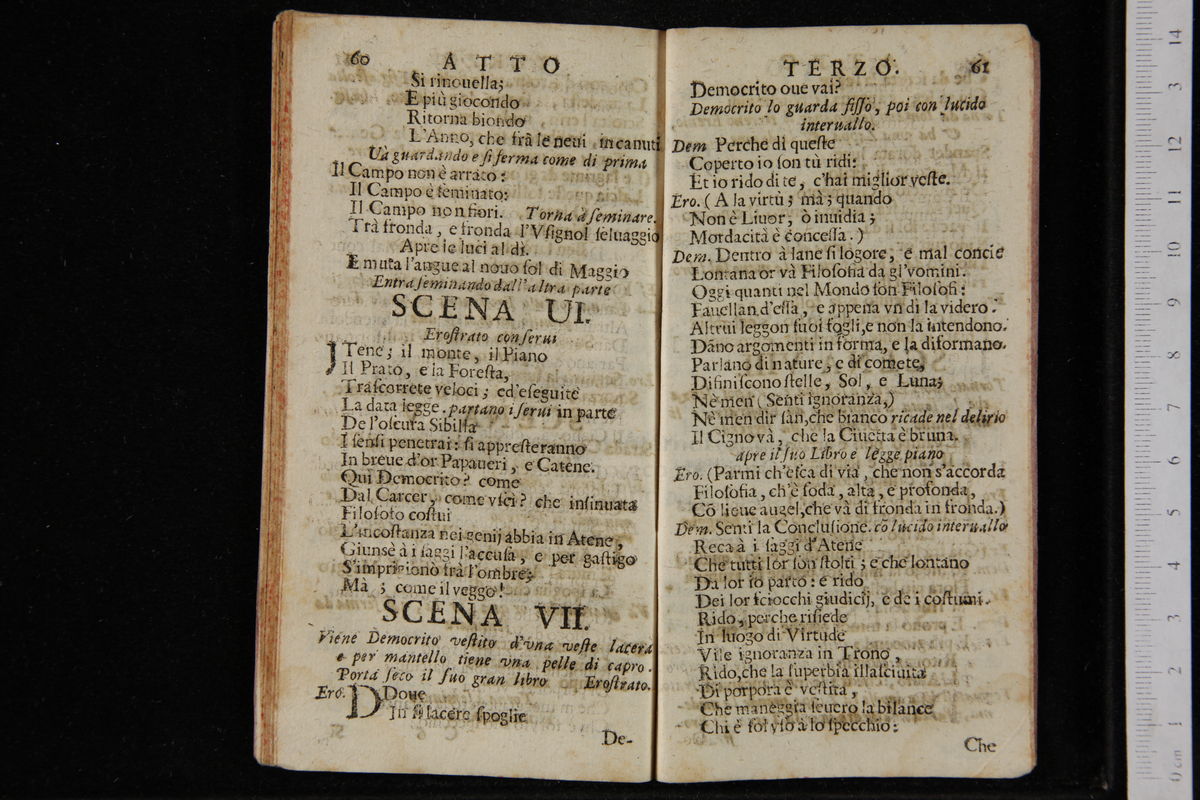 60 ATTO
Si rinouella;
E più giocondo
Ritorna biondo
L'Anno, che frà le neui incanuti
Và guardando e si ferma come di prima
Il Campo non è arrato:
Il Campo è seminato:
Il Campo non fiori. Torna à seminare.
Trà fronda, e fronda l'Vsignol seluaggio
Apre le luci al dì.
E muta l'angue al nouo sol di Maggio
Entra seminando dall'altra parte
SCENA UI.
Erostrato con serui
ITene; il monte, il Piano
Il Prato, e la Foresta,
Trascorrete veloci; ed'eseguite
La data legge. partano i serui in parte
De l'oscura Sibilla
I sensi penetrai: si appresteranno
In breue d'or Papaueri, e Catene.
Qui Democrito? come
Dal Carcer, come vscì? che insinuata
Filosofo costui
L'incostanza nei genij abbia in Atene,
Giunsè à i saggi l'accusa, e per gastigo
S'imprigionò frà l'ombre;
Mà ; come il veggo!
SCENA VII.
Viene Democrito vestito d'vna veste lacera
e per mantello tiene vna pelle di capro.
Porta seco il suo gran libro Erostrato.
Ero. DDoue
In sì lacere spoglie
De-
TERZO. 61
Democrito oue vai?
Democrito lo guarda fisso, poi con lucido
interuallo.
Dem Perche di queste
Coperto io son tù ridi:
Et io rido di te, c'hai miglior veste.
Ero. ( A la virtù; mà; quando
Non è Liuor, ò inuidia;
Mordacità è concessa. )
Dem. Dentro à lane sì logore, e mal concie
Lontana or và Filosofia da gl'vomini.
Oggi quanti nel Mondo son Filosofi:
Fauellan d'essa, e appena vn di la videro:
Altrui leggon suoi fogli,e non la intendono.
Dāno argomenti in forma, e la diformano.
Parlano di nature, e di comete,
Difiniscono stelle, Sol, e Luna;
Nè men ( Senti ignoranza,)
Nè men dir san,che bianco ricade nel delirio
Il Cigno và, che la Ciuetta è bruna.
apre il suo Libro e legge piano
Ero. (Parmi ch'esca di via, che non s'accorda
Filosofia, ch'è soda, alta, e profonda,
Cō lieue augel,che và di fronda in fronda.)
Dem. Senti la Conclusione. cō lucido interuallo
Reca à i saggi d'Atene
Che tutti lor son stolti; e che lontano
Da lor io parto: e rido
Dei lor sciocchi giudicij, e de i costumi.
Rido, perche risiede
In luogo di Virtude
Vile ignoranza in Trono,
Rido,che la superbia illasciuita
Di porpora è vestita,
Che maneggia seuero la bilance
Chi è sol vso à lo specchio:
Che
0 cm 1 2 3 4 5 6 7 8 9 10 11 12 13 14